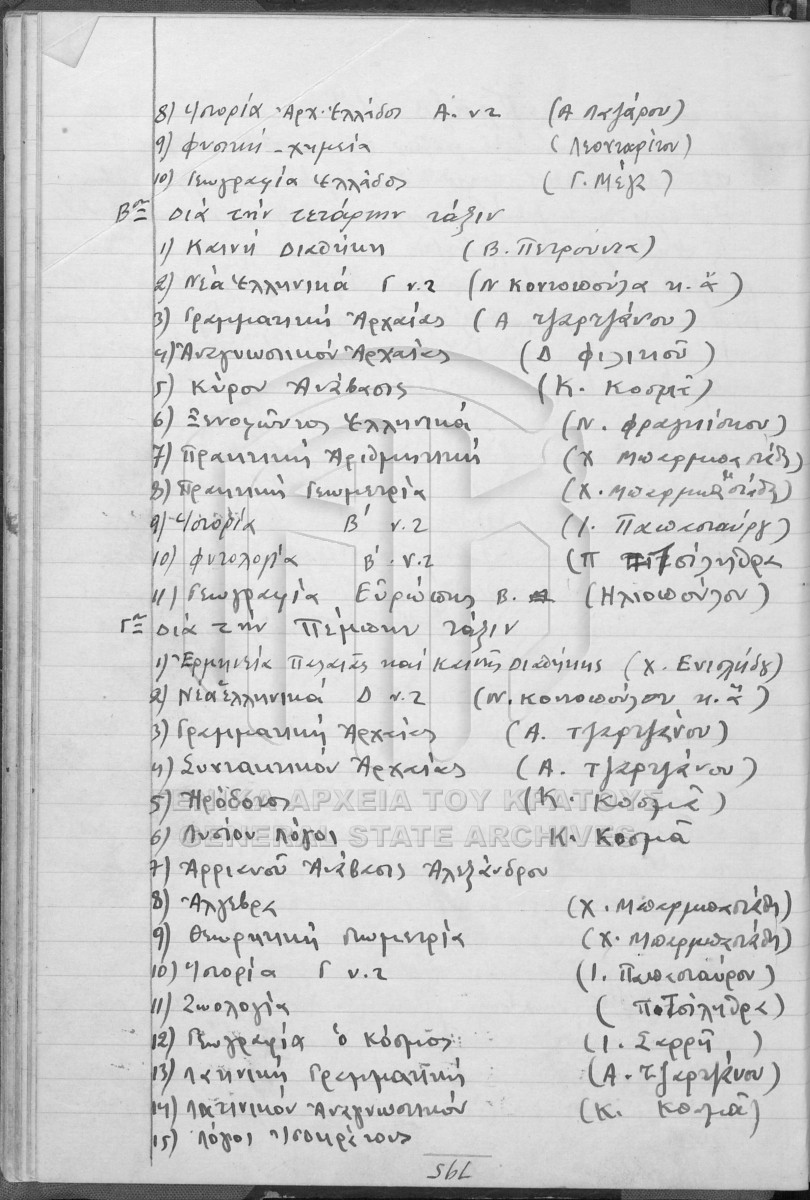 8) Ἱστορία Ἀρχ. Ἑλλάδος Α. ν.τ (Α Λαζάρου)
9) Φυσική - χημεία (Λεονταρίτου)
10) Γεωγραφία Ἑλλάδος (Γ. Μέγα)
Βον διά τήν τετάρτην τάξιν
1) Καινή Διαθήκη (Β. Πετρούντα)
2) Νέα Ἑλληνικά Γ ν.τ (Ν Κοντοπούλα κ. ἄ)
3) Γραμματική Ἀρχαίας (Α Τζαρτζάνου)
4) Ἀναγνωστικόν Ἀρχαίας (Δ Φιλικοῦ)
5) Κύρου Ἀνάβασις (Κ. Κοσμᾶ)
6) Ξενοφῶντος Ἑλληνικά (Ν. Φραγκίσκου)
7) Πρακτική Ἀριθμητική (Χ Μπαρμπαστάθη)
8) Πρακτική Γεωμετρία (Χ. Μπαρμπαστάθη)
9) Ἱστορία Β΄ ν.τ (Ι. Παπασταύρου)
10) Φυτολογία Β΄. ν.τ (Π Τσίληθρα
11) Γεωγραφία Εὐρώπης Β. (Ηλιοπούλου)
Γον διά τήν Πέμπτην τάξιν
1) Ἑρμηνεία Παλαιᾶς καί Καινῆς Διαθήκης (Χ. Ενισλείδη)
2) Νέα Ἑλληνικά Δ ν.τ (Ν. Κοντοπούλου κ. ἄ)
3) Γραμματική Ἀρχαίας (Α. Τζαρτζάνου)
4) Συντακτικόν Ἀρχαίας (Α. Τζαρτζάνου)
5) Ἡρόδοτος (Κ. Κοσμᾶ)
ΓΕΝΙΚΑ ΑΡΧΕΙΑ ΤΟΥ ΚΡΑΤΟΥΣ
6) Λυσίου λόγοι Κ. Κοσμᾶ
GENERAL STATE ARCHIVES
7) Ἀρριανοῦ Ἀνάβασις Ἀλεξάνδρου
8) Ἄλγεβρα (Χ. Μπαρμπαστάθη)
9) Θεωρητική Γεωμετρία (Χ. Μπαρμπαστάθη)
10) Ἱστορία Γ ν.τ (Ι. Παπασταύρου)
11) Ζωολογία (Π. Τσίληθρα)
12) Γεωγραφία ὁ Κόσμος (Ι. Σαρρῆ)
13) Λατινική Γραμματική (Α. Τζαρτζάνου)
14) Λατινικόν Ἀναγνωστικόν (Κ. Κοσμᾶ)
15) Λόγοι Ἰσοκράτους